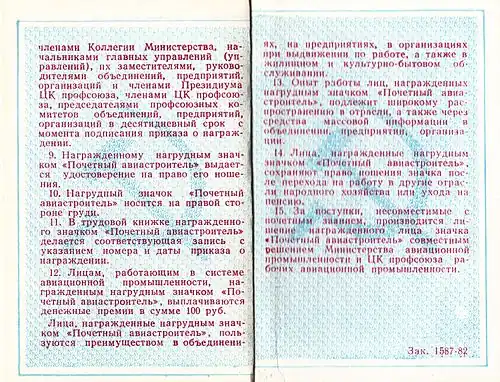 членами Коллегии Министерства, на-
чальниками главных управлений (уп-
равлений), их заместителями, руково-
дителями объединений, предприятий,
организаций и членами Президиума
ЦК профсоюза, членами ЦК профсою-
за, председателями профсоюзных ко-
митетов объединений, предприятий,
организаций в десятидневный срок с
момента подписания приказа о награж-
дении.
9. Награжденному нагрудным знач-
ком «Почетный авиастроитель» выдает-
ся удостоверение на право его ноше-
ния.
10. Нагрудный значок «Почетный
авиастроитель» носится на правой сто-
роне груди.
11. В трудовой книжке награжденно-
го значком «Почетный авиастроитель»
делается соответствующая запись с
указанием номера и даты приказа о
награждении.
12. Лицам, работающим в системе
авиационной промышленности, на-
гражденным нагрудным значком «По-
четный авиастроитель», выплачиваются
денежные премии в сумме 100 руб.
Лица, награжденные нагрудным знач-
ком «Почетный авиастроитель», поль-
зуются преимуществом в объединени-
ях, на предприятиях, в организациях
при выдвижении по работе, а также в
жилищном и культурно-бытовом об-
служивании.
13. Опыт работы лиц, награжденных
нагрудным значком «Почетный авиа-
строитель», подлежит широкому рас-
пространению в отрасли, а также через
средства массовой информации в
объединении, предприятии, организа-
ции.
14. Лица, награжденные нагрудным
значком «Почетный авиастроитель»,
сохраняют право ношения значка пос-
ле перехода на работу в другие отрас-
ли народного хозяйства или ухода на
пенсию.
15. За поступки, несовместимые с
почетным званием, производится ли-
шение награжденного лица значка
«Почетный авиастроитель» совместным
решением Министерства авиационной
промышленности и ЦК профсоюза ра-
бочих авиационной промышленности.
Зак. 1587-82